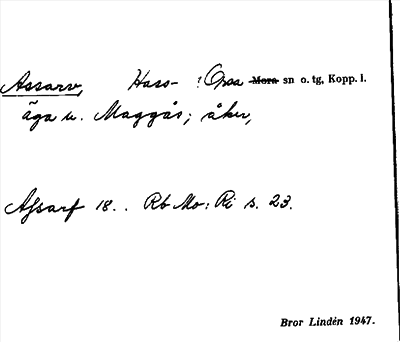 Assarv, Hass- : Orsa Mora sn o. tg, Kopp. l.
äga u. Maggås; åker,
Assarf 18. . Rb Mo: Ri s. 23.
Bror Lindén 1947.